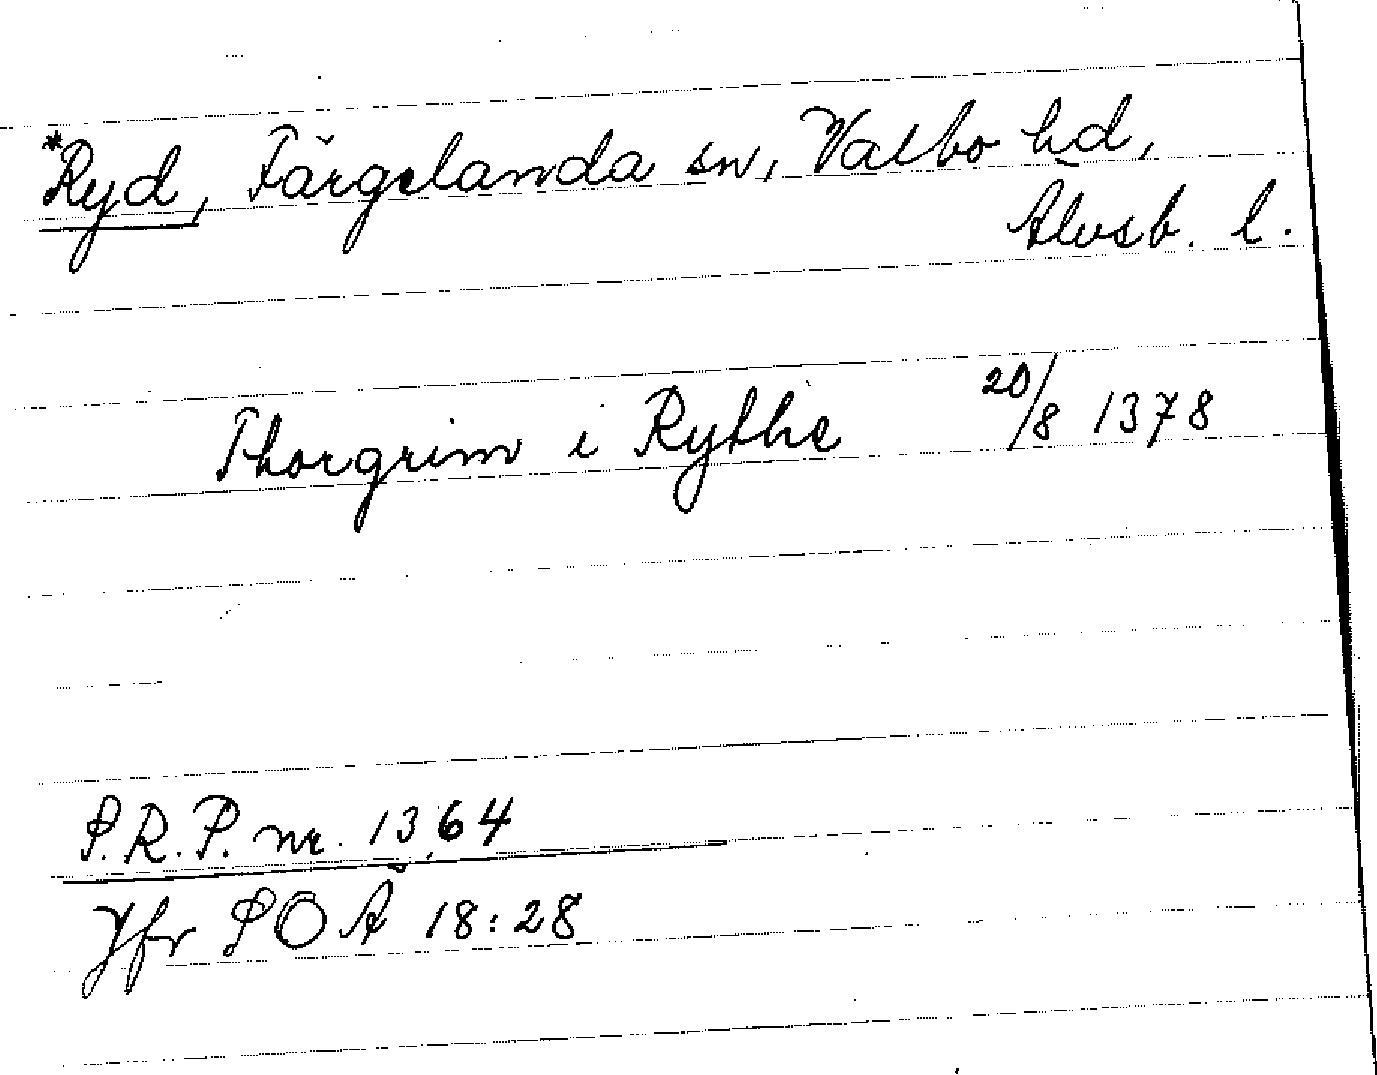 *Ryd, Färgelanda sn, Valbo hd,
Älvsb. l.
Thorgrim i Rythe 20/8 1378
S.R.P. nr. 1364
Jfr SOÄ 18:28